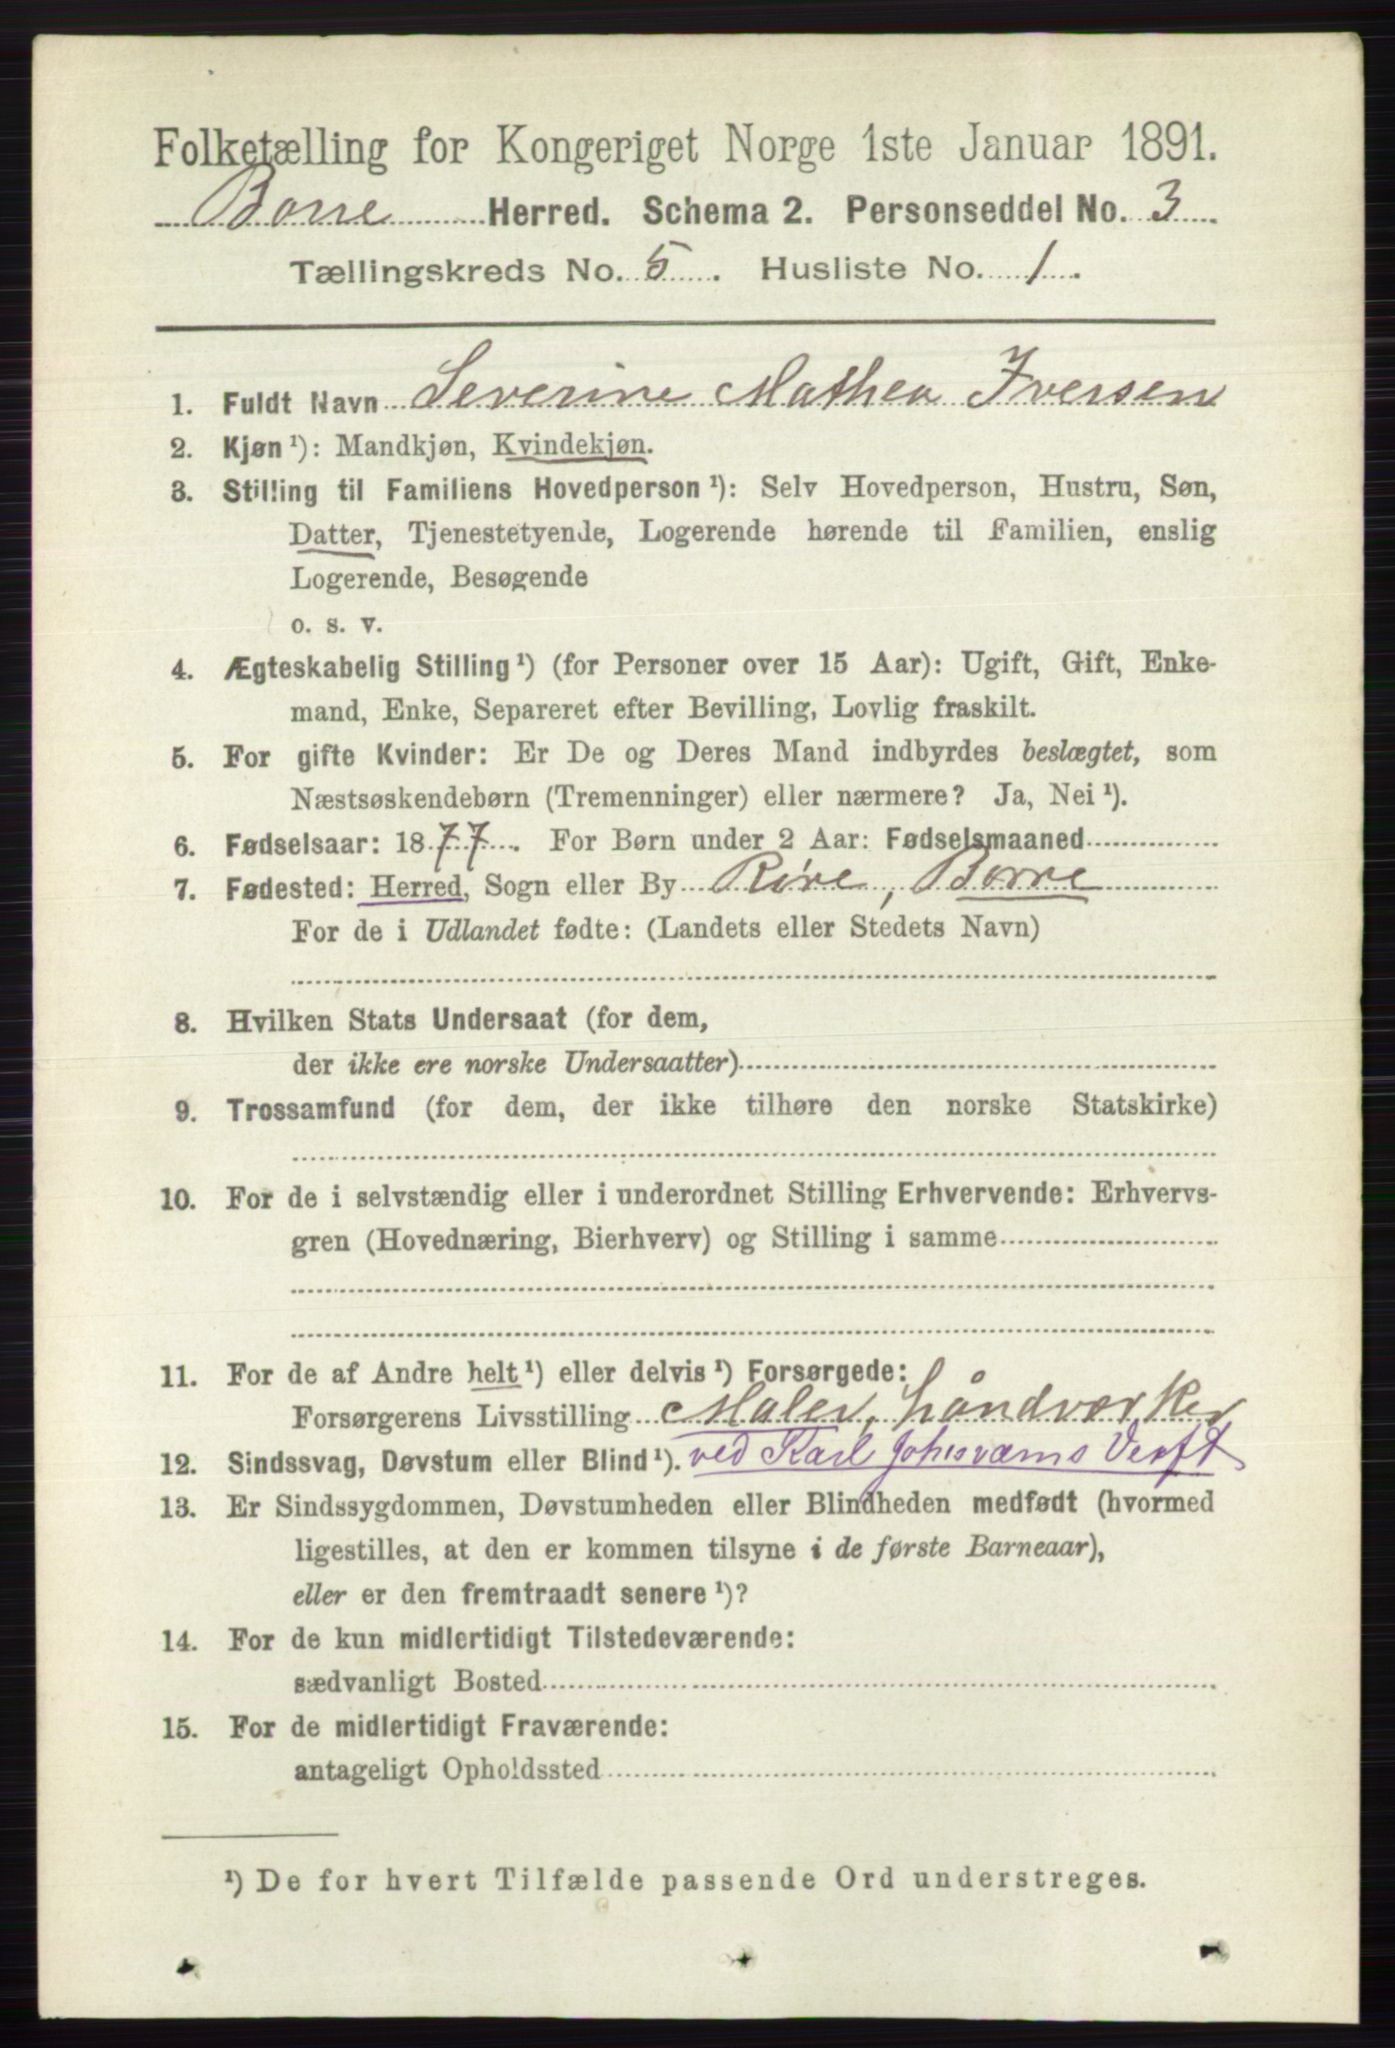 Folketælling for Kongeriget Norge 1ste Januar 1891.
Borre Herred. Schema 2. Personseddel No. 3
Tællingskreds No. 5. Husliste No. 1.
1. Fuldt Navn Severine Mathea Iversen
2. Kjøn ¹): Mandkjøn, Kvindekjøn.
3. Stilling til Familiens Hovedperson ¹): Selv Hovedperson, Hustru, Søn,
Datter, Tjenestetyende, Logerende hørende til Familien, enslig
Logerende, Besøgende
o. s. v.
4. Ægteskabelig Stilling ¹) (for Personer over 15 Aar): Ugift, Gift, Enke-
mand, Enke, Separeret efter Bevilling, Lovlig fraskilt.
5. For gifte Kvinder: Er De og Deres Mand indbyrdes beslægtet, som
Næstsøskendebørn (Tremenninger) eller nærmere? Ja, Nei ¹).
6. Fødselsaar: 1877. For Børn under 2 Aar: Fødselsmaaned
7. Fødested: Herred, Sogn eller By Røre, Borre
For de i Udlandet fødte: (Landets eller Stedets Navn)
8. Hvilken Stats Undersaat (for dem,
der ikke ere norske Undersaatter)
9. Trossamfund (for dem, der ikke tilhøre den norske Statskirke)
10. For de i selvstændig eller i underordnet Stilling Erhvervende: Erhvervs-
gren (Hovednæring, Bierhverv) og Stilling i samme
11. For de af Andre helt ¹) eller delvis ¹) Forsørgede:
Forsørgerens Livsstilling Maler, håndværker
12. Sindssvag, Døvstum eller Blind ¹). ved Karl Johesværns Verft
13. Er Sindssygdommen, Døvstumheden eller Blindheden medfødt (hvormed
ligestilles, at den er kommen tilsyne i de første Barneaar),
eller er den fremtraadt senere ¹)?
14. For de kun midlertidigt Tilstedeværende:
sædvanligt Bosted
15. For de midlertidigt Fraværende:
antageligt Opholdssted
¹) De for hvert Tilfælde passende Ord understreges.